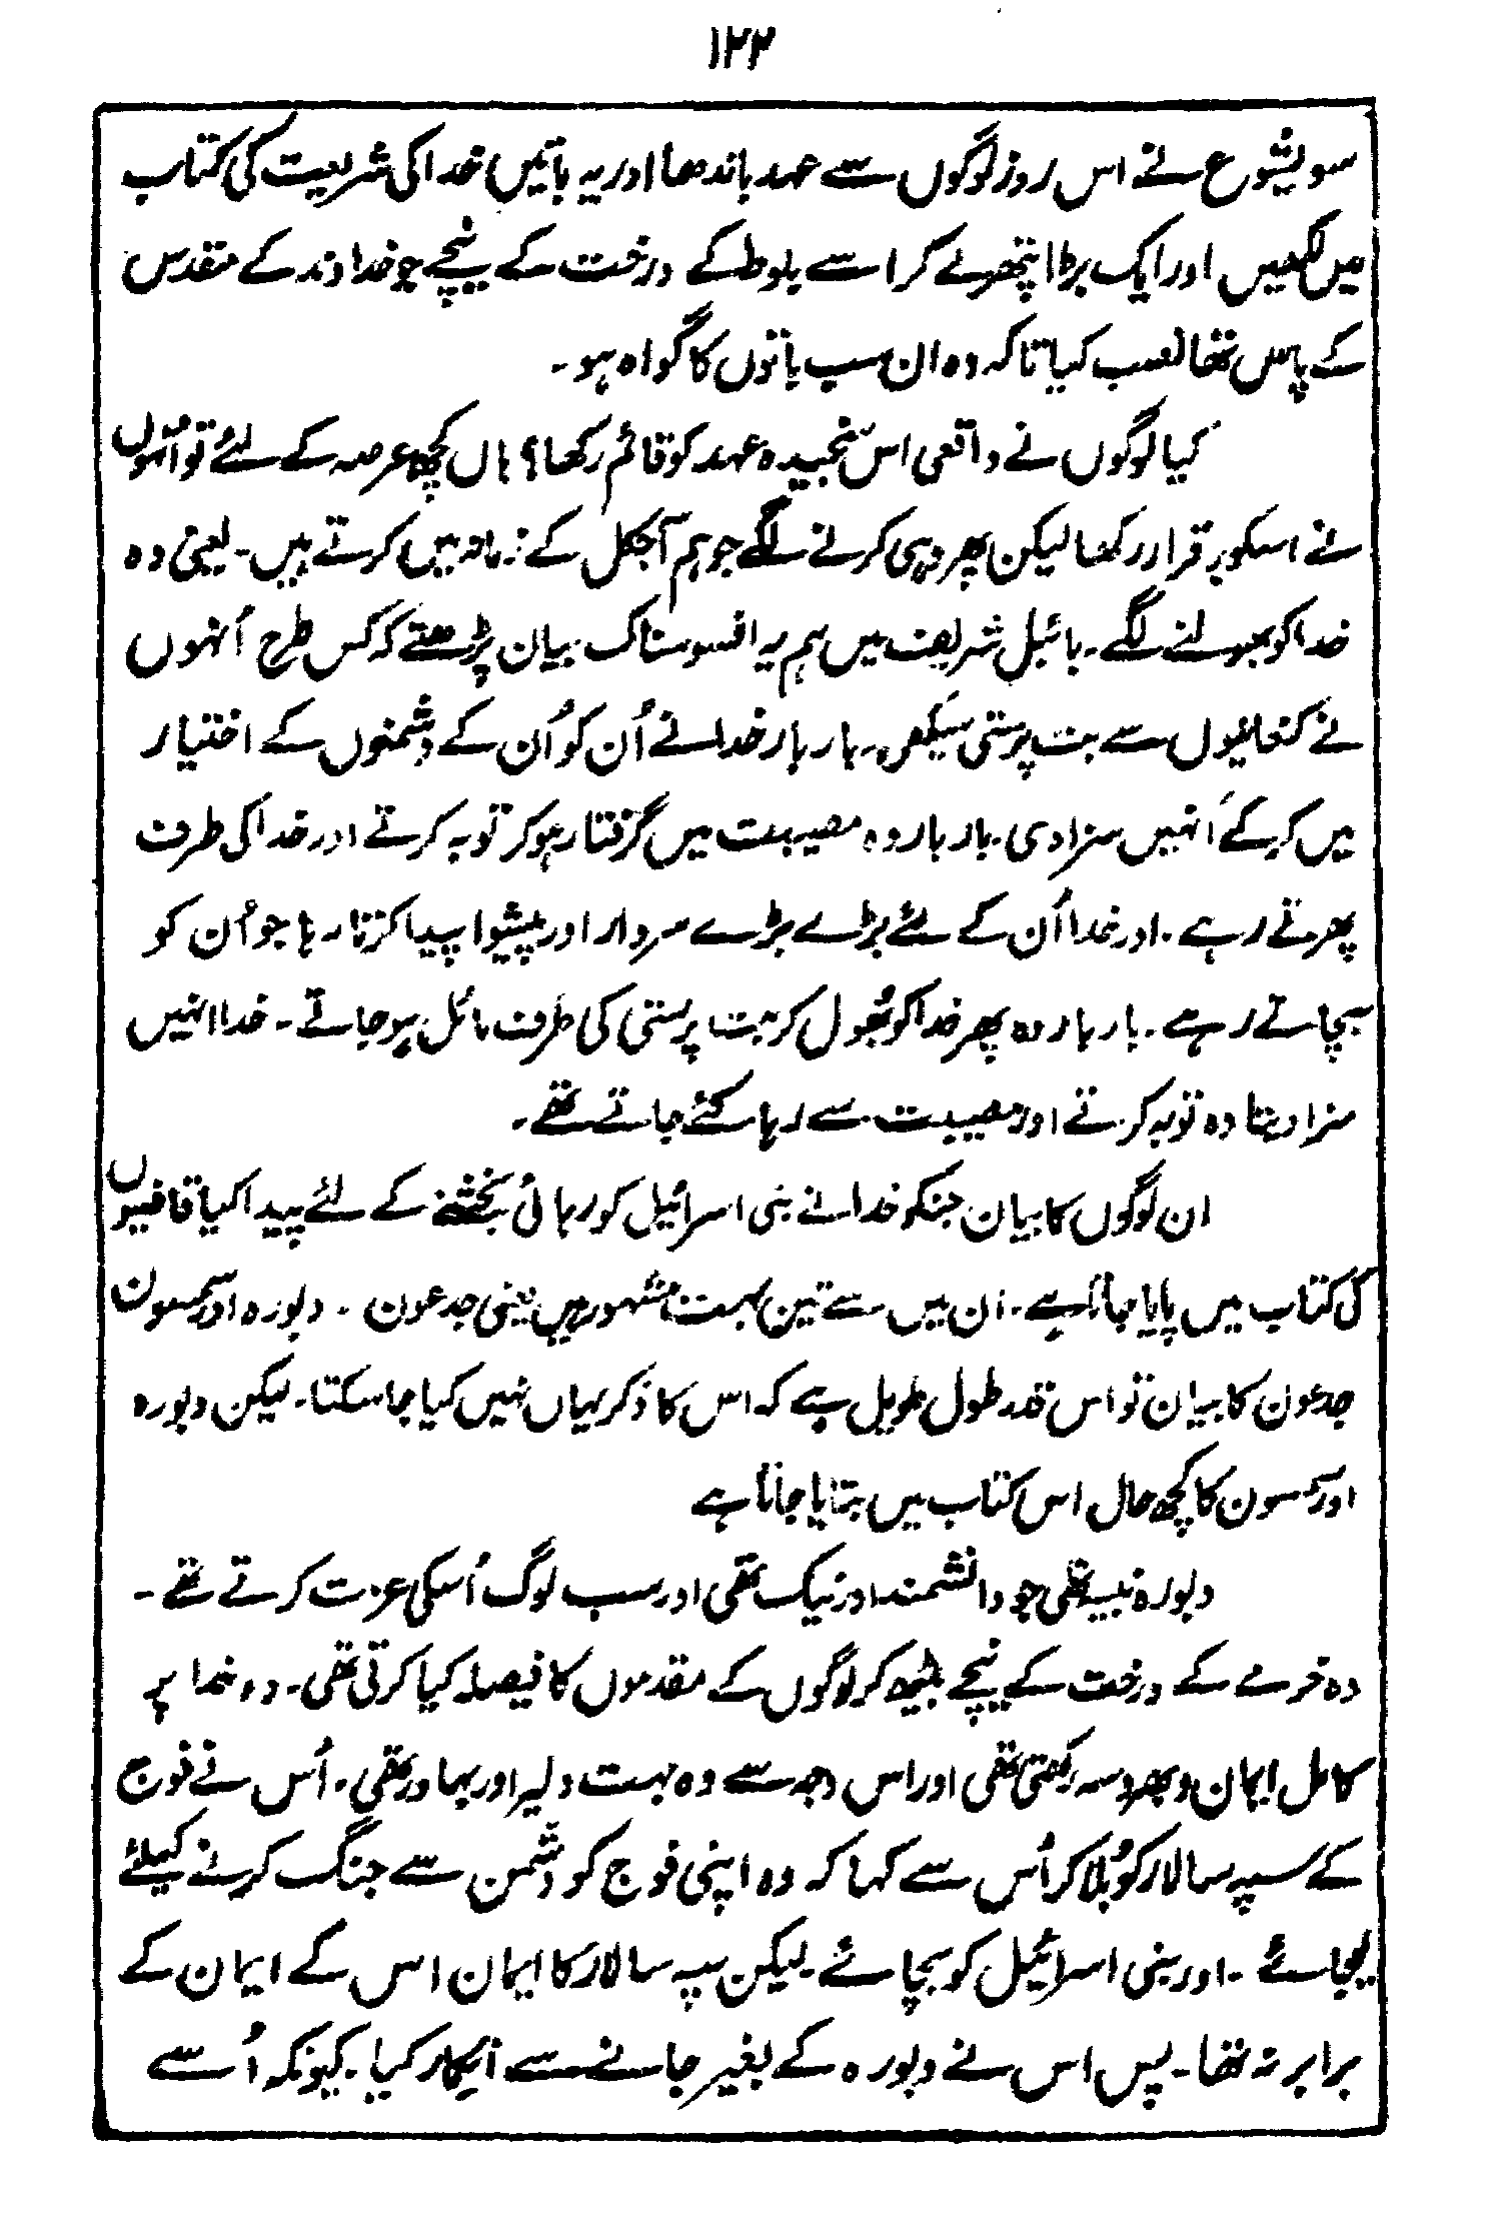 ۱۲۲
سو یشوع نے اس روز لوگوں سے عہد باندھا اور یہ باتیں خدا کی شریعت کی کتاب
میں لکھیں اور ایک بڑا پتھر لے کر اسے بلوط کے درخت کے نیچے جو خداوند کے مقدس
کے پاس تھا نصب کیا تاکہ وہ ان سب باتوں کا گواہ ہو۔
کیا لوگوں نے واقعی اس سنجیدہ عہد کو قائم رکھا؟ ہاں کچھ عرصہ کے لئے تو اُنہوں
نے اسکو برقرار رکھا لیکن پھر وہی کرنے لگے جو ہم آجکل کے زمانہ میں کرتے ہیں۔ یعنی وہ
خدا کو بھولنے لگے۔ بائبل شریف میں ہم یہ افسوسناک بیان پڑھتے کہ کس طرح اُنہوں
نے کنعانیوں سے بت پرستی سیکھی۔ بار بار خدا نے اُن کو اُن کے دشمنوں کے اختیار
میں کر کے اُنہیں سزا دی۔ بار بار وہ مصیبت میں گرفتار ہو کر توبہ کرتے اور خدا کی طرف
پھرتے رہے۔ اور خدا اُن کے لئے بڑے بڑے سردار اور پیشوا پیدا کرتا رہا جو اُن کو
بچاتے رہے۔ بار بار وہ پھر خدا کو بھُول کر بت پرستی کی طرف مائل ہو جاتے۔ خدا انہیں
سزا دیتا وہ توبہ کرتے اور مصیبت سے رہا کئے جاتے تھے۔
ان لوگوں کا بیان جنکو خدا نے بنی اسرائیل کو رہائی بخشنے کے لئے پیدا کیا قاضیوں
کی کتاب میں پایا جاتا ہے۔ ان میں سے تین بہت مشہور ہیں یعنی جدعون ۔ دبورہ اور سمسون
جدعون کا بیان تو اس قدر طول طویل ہے کہ اس کا ذکر یہاں نہیں کیا جا سکتا۔ لیکن دبورہ
اور سمسون کا کچھ حال اس کتاب میں بتایا جاتا ہے
دبورہ نبیہ تھی جو دانشمند اور نیک تھی اور سب لوگ اُسکی عزت کرتے تھے۔
وہ خرمے کے درخت کے نیچے بیٹھ کر لوگوں کے مقدموں کا فیصلہ کیا کرتی تھی۔ وہ خدا پر
کامل ایمان و بھروسہ رکھتی تھی اور اس وجہ سے وہ بہت دلیر اور بہادر تھی۔ اُس نے فوج
کے سپہ سالار کو بُلا کر اُس سے کہا کہ وہ اپنی فوج کو دشمن سے جنگ کرنے کیلئے
لیجائے ۔ اور بنی اسرائیل کو بچائے۔ لیکن سپہ سالار کا ایمان اس کے ایمان کے
برابر نہ تھا۔ پس اس نے دبورہ کے بغیر جانے سے انکار کیا۔ کیونکہ اُسے